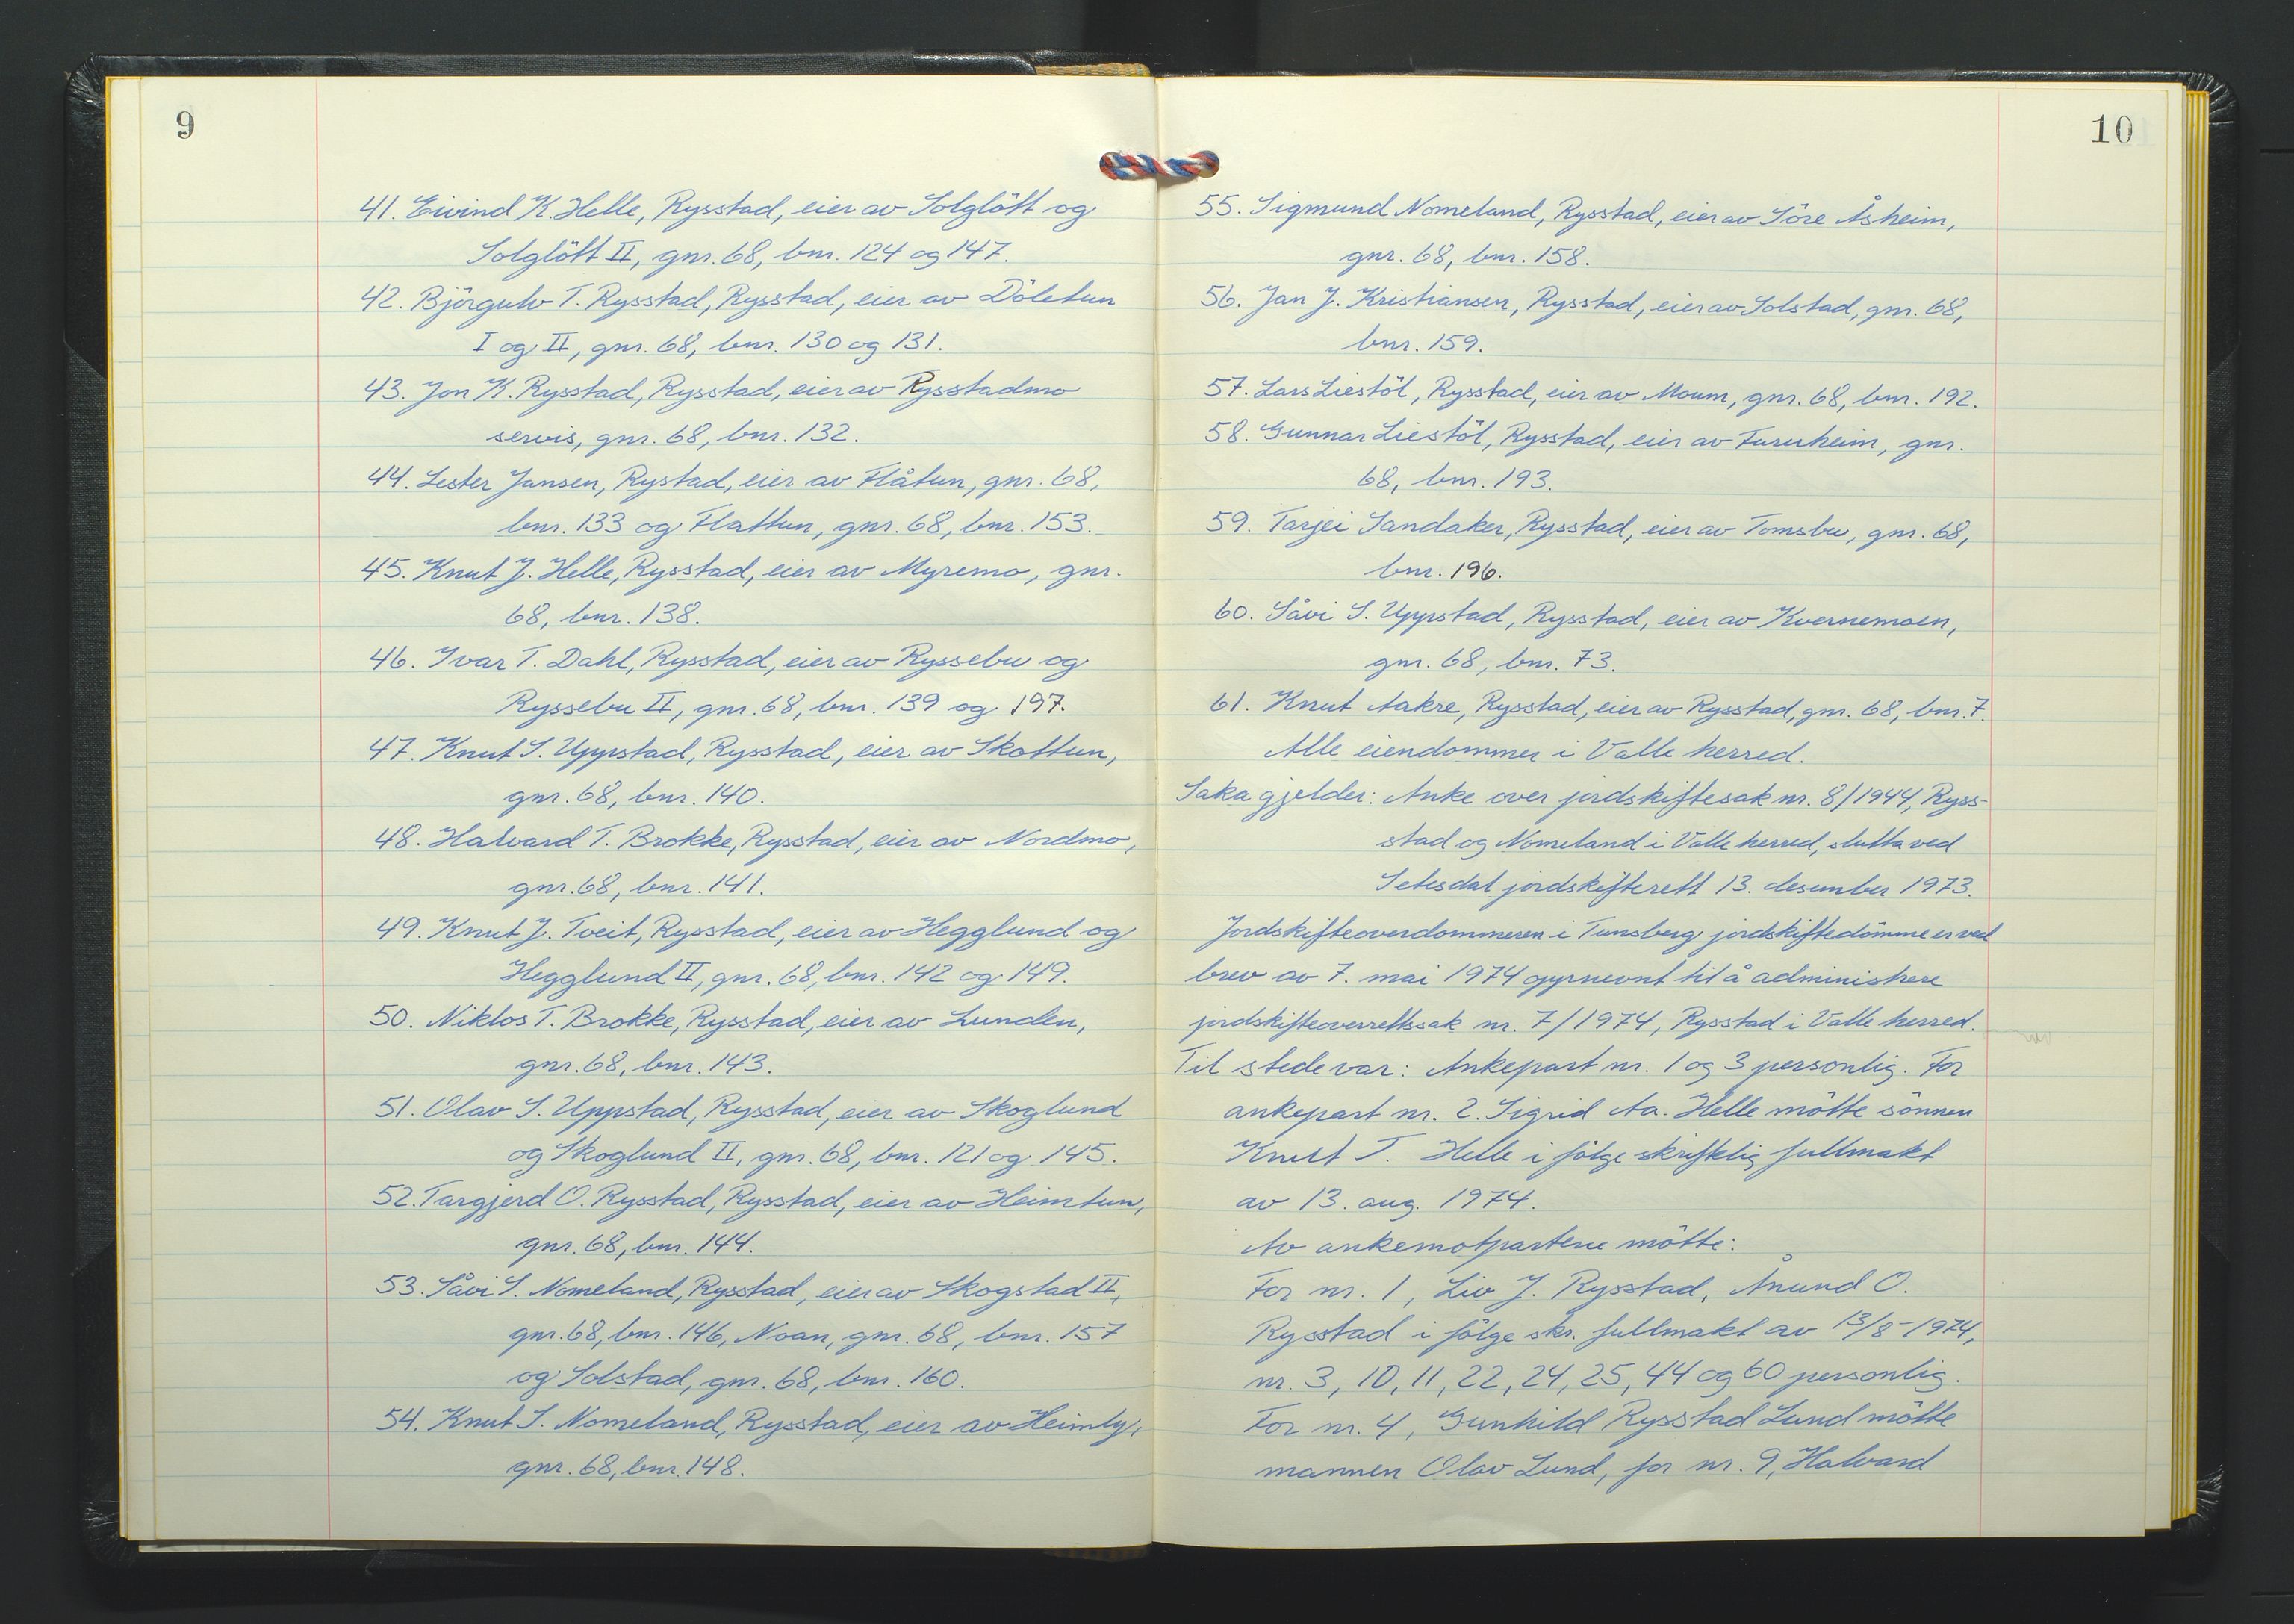 9
41. Eivind K. Helle, Rysstad, eier av Solglött og
Solglött II, gnr. 68, bnr. 124 og 147.
42. Björgulv T. Rysstad, Rysstad, eier av Döletun
I og II, gnr. 68, bnr. 130 og 131.
43. Jon K. Rysstad, Rysstad, eier av Rysstadmo
servis, gnr. 68, bnr. 132.
44. Lester Jansen, Rystad, eier av Flåtun, gnr. 68,
bnr. 133 og Flattun, gnr. 68, bnr. 153.
45. Knut J. Helle, Rysstad, eier av Myremo, gnr.
68, bnr. 138.
46. Ivar T. Dahl, Rysstad, eier av Ryssebu og
Ryssebu II, gnr. 68, bnr. 139 og 197.
47. Knut S. Uppstad, Rysstad, eier av Skottun,
gnr. 68, bnr. 140.
48. Halvard T. Brokke, Rysstad, eier av Nordmo,
gnr. 68, bnr. 141.
49. Knut J. Tveit, Rysstad, eier av Hegglund og
Hegglund II, gnr. 68, bnr. 142 og 149.
50. Niklos T. Brokke, Rysstad, eier av Lunden,
gnr. 68, bnr. 143.
51. Olav S. Uppstad, Rysstad, eier av Skoglund
og Skoglund II, gnr. 68, bnr. 121 og 145.
52. Targjerd O. Rysstad, Rysstad, eier av Heimtun,
gnr. 68, bnr. 144.
53. Såvi S. Nomeland, Rysstad, eier av Skogstad II,
gnr. 68, bnr. 146, Noan, gnr. 68, bnr. 157
og Solstad, gnr. 68, bnr. 160.
54. Knut S. Nomeland, Rysstad, eier av Heimly,
gnr. 68, bnr. 148.
10
55. Sigmund Nomeland, Rysstad, eier av Söre Åsheim,
gnr. 68, bnr. 158.
56. Jan J. Kristiansen, Rysstad, eier av Solstad, gnr. 68,
bnr. 159.
57. Lars Liestöl, Rysstad, eier av Moum, gnr. 68, bnr. 192.
58. Gunnar Liestöl, Rysstad, eier av Furuheim, gnr.
68, bnr. 193.
59. Tarjei Sandaker, Rysstad, eier av Tomsbu, gnr. 68,
bnr. 196.
60. Såvi S. Uppstad, Rysstad, eier av Kvernemoen,
gnr. 68, bnr. 73.
61. Knut Aakre, Rysstad, eier av Rysstad, gnr. 68, bnr. 7.
Alle eiendommer i Valle herred.
Saka gjelder: Anke over jordskiftesak nr. 8/1944, Ryss-
stad og Nomeland i Valle herred, slutta ved
Setesdal jordskifterett 13. desember 1973.
Jordskifteoverdommeren i Tunsberg jordskiftedömme er ved
brev av 7. mai 1974 oppnevnt til å administrere
jordskifteoverrettssak nr. 7/1974, Rysstad i Valle herred.
Til stede var: Ankepart nr. 1 og 3 personlig. For
ankepart nr. 2. Sigrid Aa. Helle mötte sönnen
Knut T. Helle i fölge skriftlig fullmakt
av 13. aug. 1974.
Av ankemotpartene mötte:
For nr. 1, Liv J. Rysstad, Ånund O.
Rysstad i fölge skr. fullmakt av 13/8-1974,
nr. 3, 10, 11, 22, 24, 25, 44 og 60 personlig.
For nr. 4, Gunhild Rysstad Lund mötte
mannen Olav Lund, for nr. 9, Halvard